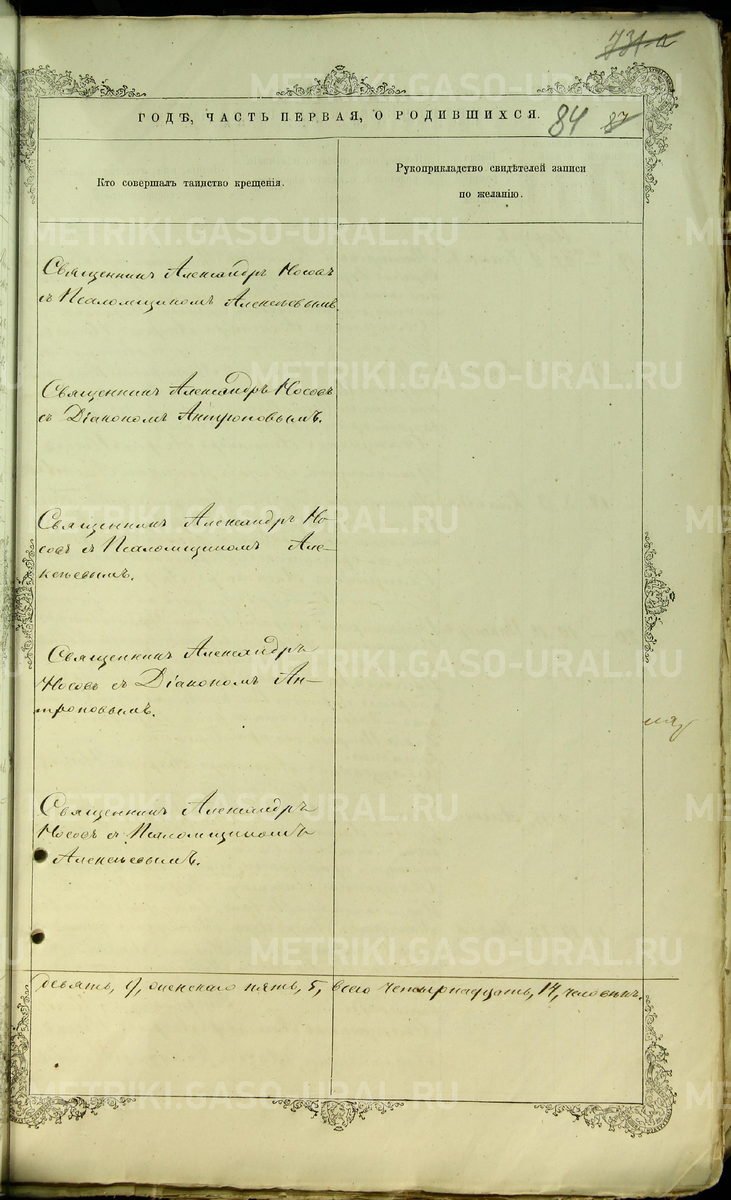 731-а
ГОДѢ, ЧАСТЬ ПЕРВАЯ, О РОДИВШИХСЯ. 84 87
Кто совершалъ таинство крещенія.
Рукоприкладство свидѣтелей записи
по желанію.
Священникъ Александръ Носовъ
съ Псаломщикомъ Алексѣевымъ
Священникъ Александръ Носовъ
съ Діакономъ Антроповымъ.
Священникъ Александръ Но-
совъ съ Псаломщикомъ Але-
ксѣевымъ.
Священникъ Александръ
Носовъ съ Діакономъ Ан-
троповымъ.
Священникъ Александръ
Носовъ съ Псаломщикомъ
Алексѣевымъ.
девять, 9, женскаго пять, 5, всего четырнадцать, 14, человѣкъ.
METRIKI.GASO-URAL.RU